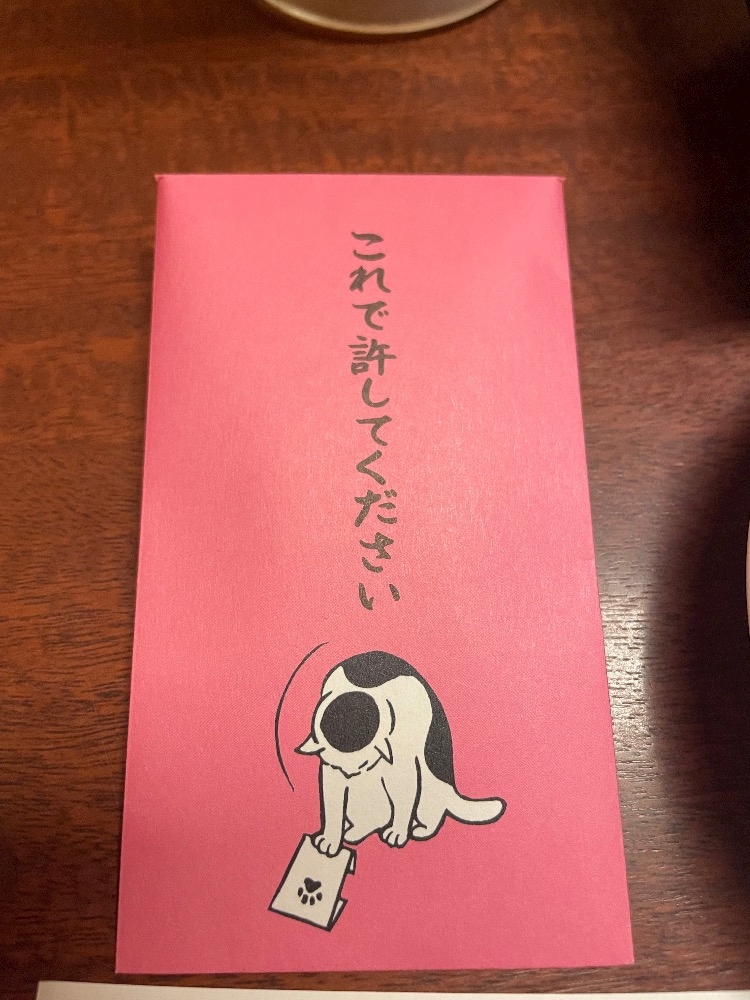 これで許してください